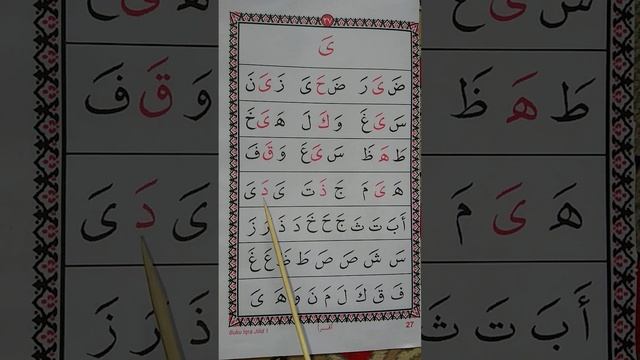 ٢٧
ىَ
ضَ ىَ رَ ضَ حَ ىَ زَ ىَ نَ
سَ ىَ غَ وَ كَ لَ هَ ىَ خَ
طَ هَ ظَ سَ ىَ غَ وَ قَ فَ
هَ ىَ مَ جَ ذَ تَ ىَ دَ ىَ
أَ بَ تَ ثَ جَ حَ خَ دَ ذَ رَ زَ
سَ شَ صَ ضَ طَ ظَ عَ غَ
فَ قَ كَ لَ مَ نَ وَ هَ ىَ
Buku Iqra Jilid 1
27